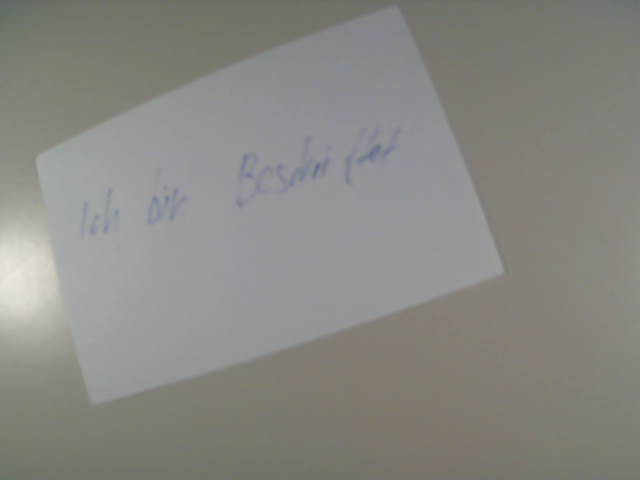 Ich bin Beschriftet